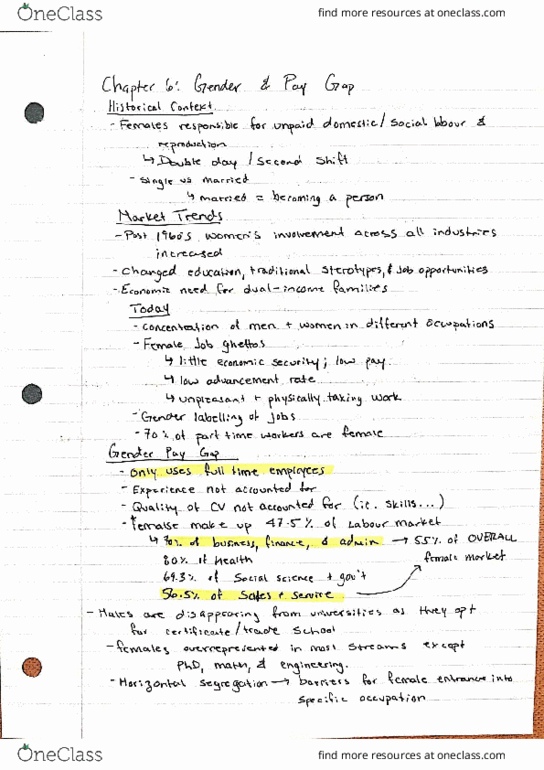 OneClass
find more resources at oneclass.com
Chapter 6: Gender & Pay Gap
Historical Context
- Females responsible for unpaid domestic/social labour &
reproduction
↳ Double day / Second Shift
- Single vs married
↳ married = becoming a person
Market Trends
- Post 1960's women's involvement across all industries
increased
- Changed education, traditional sterotypes, & job opportunities
- Economic need for dual-income families
Today
- concentration of men + women in different occupations
- Female Job ghettos
↳ little economic security; low pay
↳ low advancement rate
↳ unpleasant + physically taking work
- Gender labelling of jobs
- 70% of part time workers are female
Gender Pay Gap
- Only uses full time employees
- Experience not accounted for
- Quality of CV not accounted for (i.e. skills...)
- Femalse make up 47.5% of labour market
↳ 70% of business, finance, & admin → 55% of OVERALL
80% of Health female market
69.3% of Social science + gov't
56.5% of Sales + service
- Males are disappearing from universities as they opt
for certificate/trade school
- females overrepresented in most streams except
PhD, math, & engineering.
- Horizontal segregation → barriers for female entrance into
specific occupation
OneClass
find more resources at oneclass.com